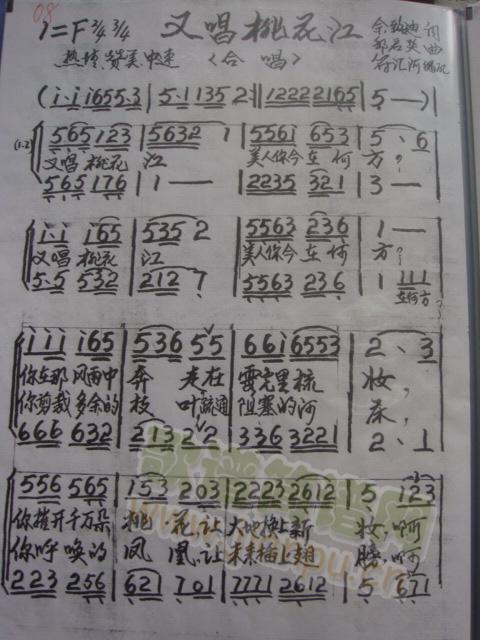 08
1=F 2/4 3/4 又唱桃花江
热情、赞美 中速 〈合唱〉
(i·i i655·3 | 5·1 135 2·‖ 12222165 | 5 — )|
(1.2) 565 123 | 5632 1 | 556i 653 | 5 、 6
又唱桃花 江 美人你今在何 方?
565 176 | 1 — | 2235 321 | 3 —
i·i i65 | 535 2 | 5563 236 | 1 —
又唱桃花 江 美人你今在何 方?
5·5 532 | 212 7 | 5563 236 | 1 111
在何方?
iii i65 | 536 55 | 66i 6553 | 2 、 3
你在那风雨中 奔 走在 雲完里梳 妆,
你剪裁多余的 枝 叶疏通 阻塞的河 床,
666 632 | 213 22 | 336 3221 | 2 、 1
556 565 | 153 203 | 2223 2612 | 5 123
你撑开千万朵 桃 花,让 大地换上新 妆,啊
你呼唤的 凤 凰,让 未来插上翅 膀,啊
223 256 | 621 701 | 7771 2612 | 5 671